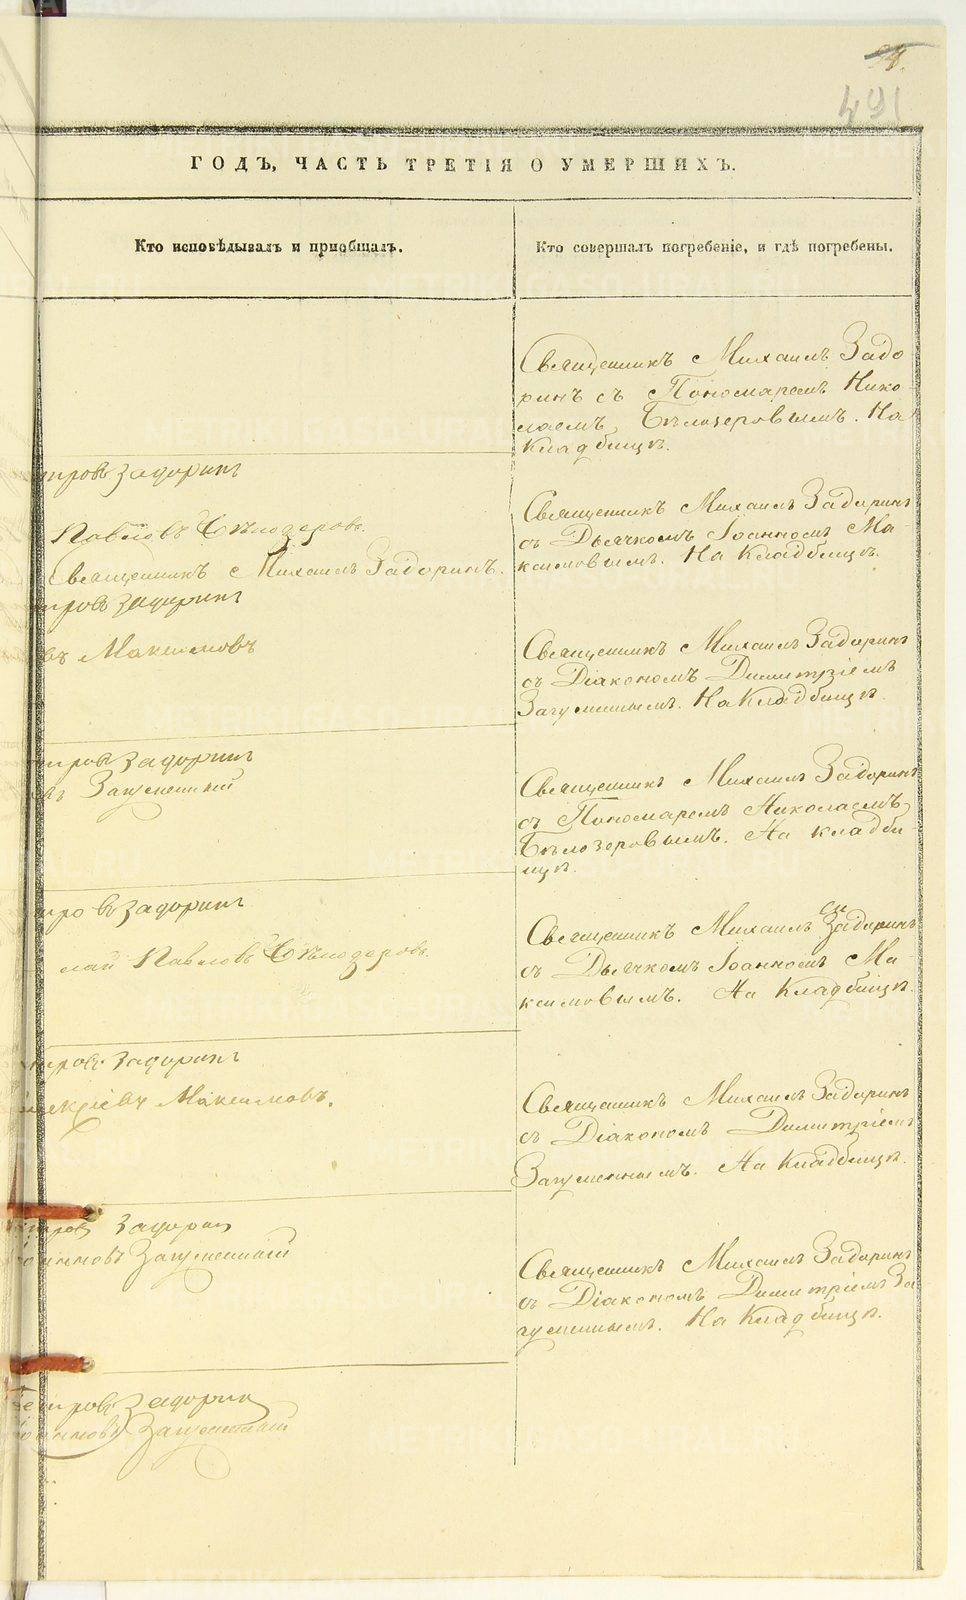 491
ГОДЪ, ЧАСТЬ ТРЕТІЯ О УМЕРШИХЪ.
Кто исповѣдывалъ и пріобщалъ.
Кто совершалъ погребеніе, и гдѣ погребены.
Священникъ Михаилъ Задо
ринъ съ Пономаремъ Нико-
лаемъ Бѣлозеровымъ. На
Кладбищѣ.
тровъ Задоринъ
Павловъ Бѣлозеровъ.
Священникъ Михаилъ Задоринъ
съ Дьячкомъ Іоанномъ Ма-
ксимовымъ. На Кладбищѣ.
Священникъ Михаилъ Задоринъ.
тровъ Задоринъ
въ Максимовъ
Священникъ Михаилъ Задоринъ
съ Діакономъ Димитріемъ
Загуменнымъ. На Кладбищѣ.
тровъ Задоринъ
въ Загуменный
Священникъ Михаилъ Задоринъ
съ Пономаремъ Николаемъ
Бѣлозеровымъ. На кладби-
щѣ.
тровъ Задоринъ
лай Павловъ Бѣлозеровъ.
Священникъ Михаилъ Задоринъ
съ Дьячкомъ Іоанномъ Ма-
ксимовымъ. На Кладбищѣ.
тровъ Задоринъ
лексіевъ Максимовъ.
Священникъ Михаилъ Задоринъ
съ Діакономъ Димитріемъ
Загуменнымъ. На Кладбищѣ.
тровъ Задоринъ
имовъ Загуменный
Священникъ Михаилъ Задоринъ
съ Діакономъ Димитріемъ За
гуменнымъ. На Кладбищѣ.
етровъ Задоринъ
имовъ Загуменный
METRIKI.GASO-URAL.RU